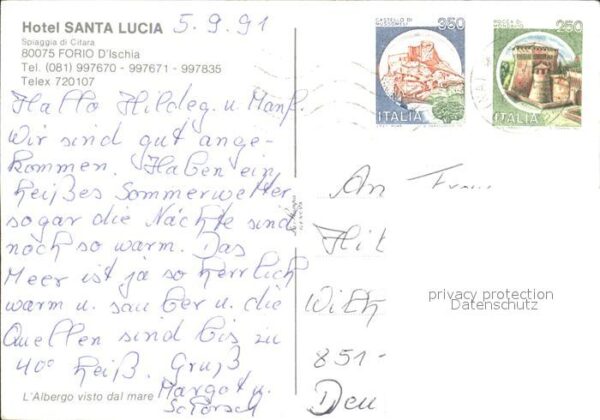 Hotel SANTA LUCIA
Spiaggia di Citara
80075 FORIO D'Ischia
Tel. (081) 997670 - 997671 - 997835
Telex 720107
5.9.91
Hallo Hildeg. u. Manf.
Wir sind gut ange-
kommen. Haben ein
heißes Sommerwetter,
sogar die Nächte sind
noch so warm. Das
Meer ist ja so herrlich
warm u. sauber u. die
Quellen sind bis zu
40° heiß. Gruß
Margot u.
Schorsch
L'Albergo visto dal mare
CASTELLO DI
MUSSOMELI
350
ITALIA
ROCCA DI
MONDAVIO
250
ITALIA
An Frau
Hil
851-
Deu
privacy protection
Datenschutz